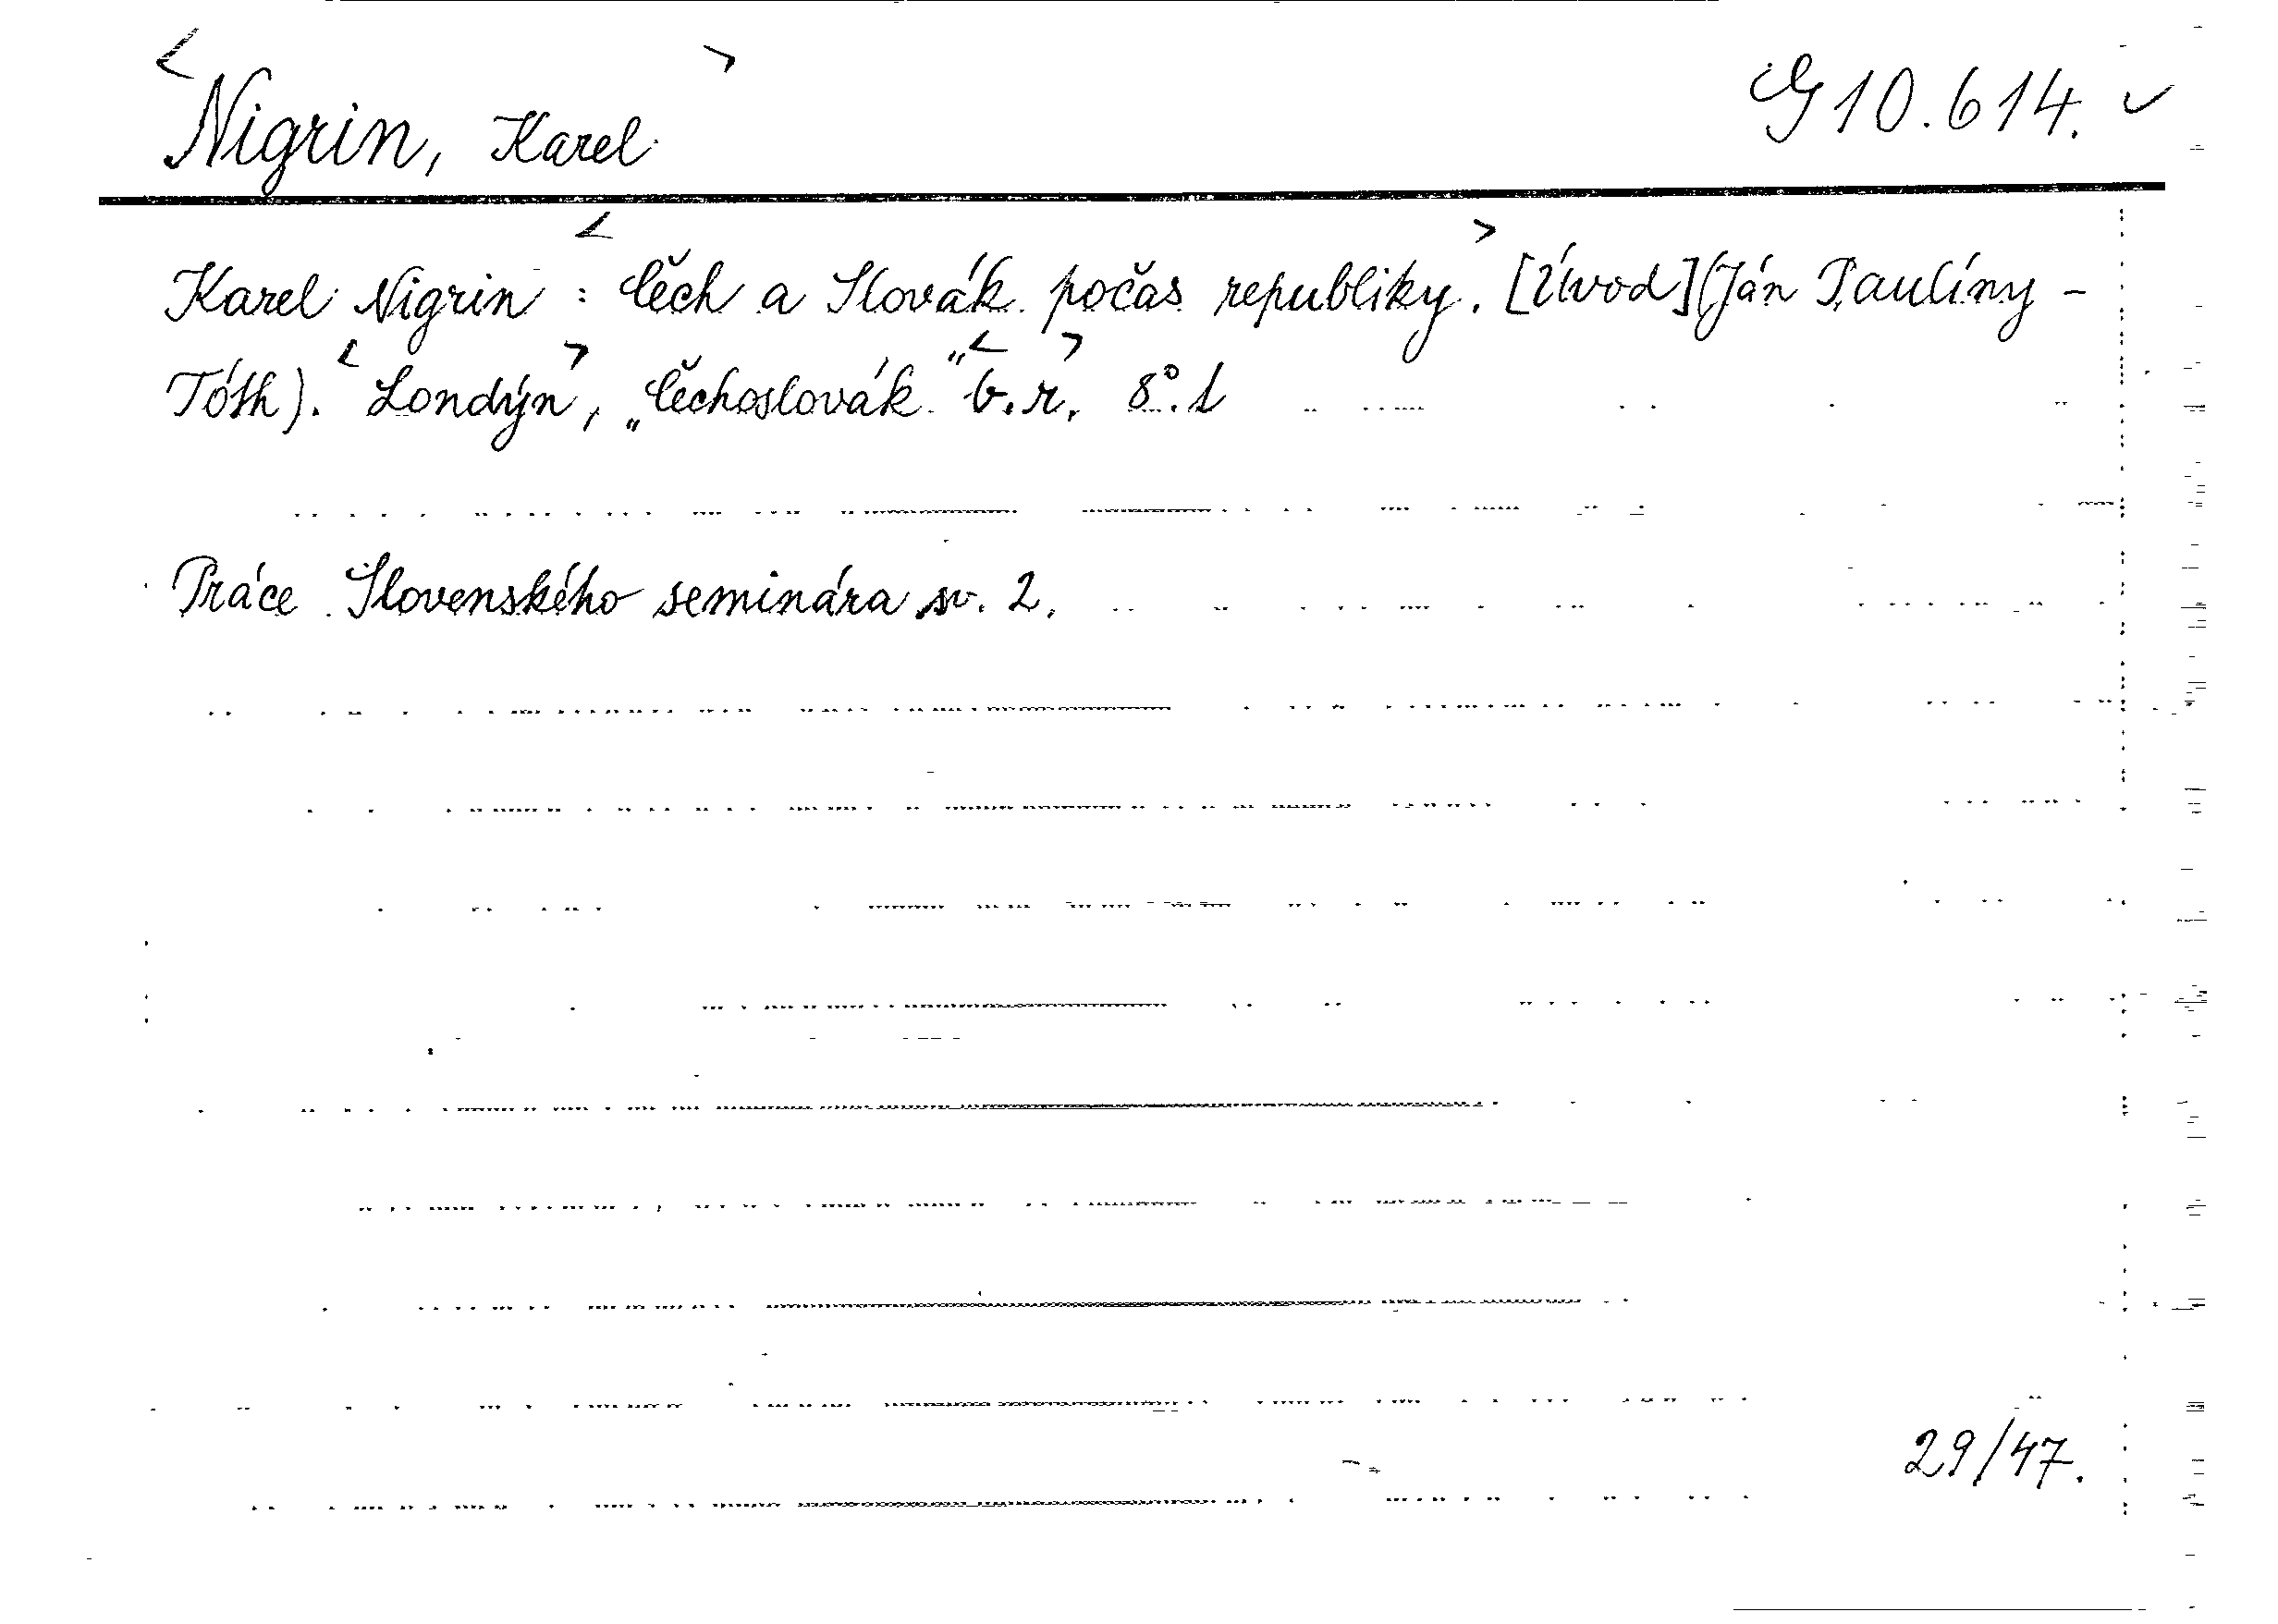 <Nigrin, Karel> G 10.614. ✓
Karel Nigrin: <Čech a Slovák počas republiky.> [Úvod] (Ján Paulíny-
Tóth). <Londýn>, „Čechoslovák" <b.r.> 8°. 1
Práce Slovenského seminára sv. 2.
29/47.